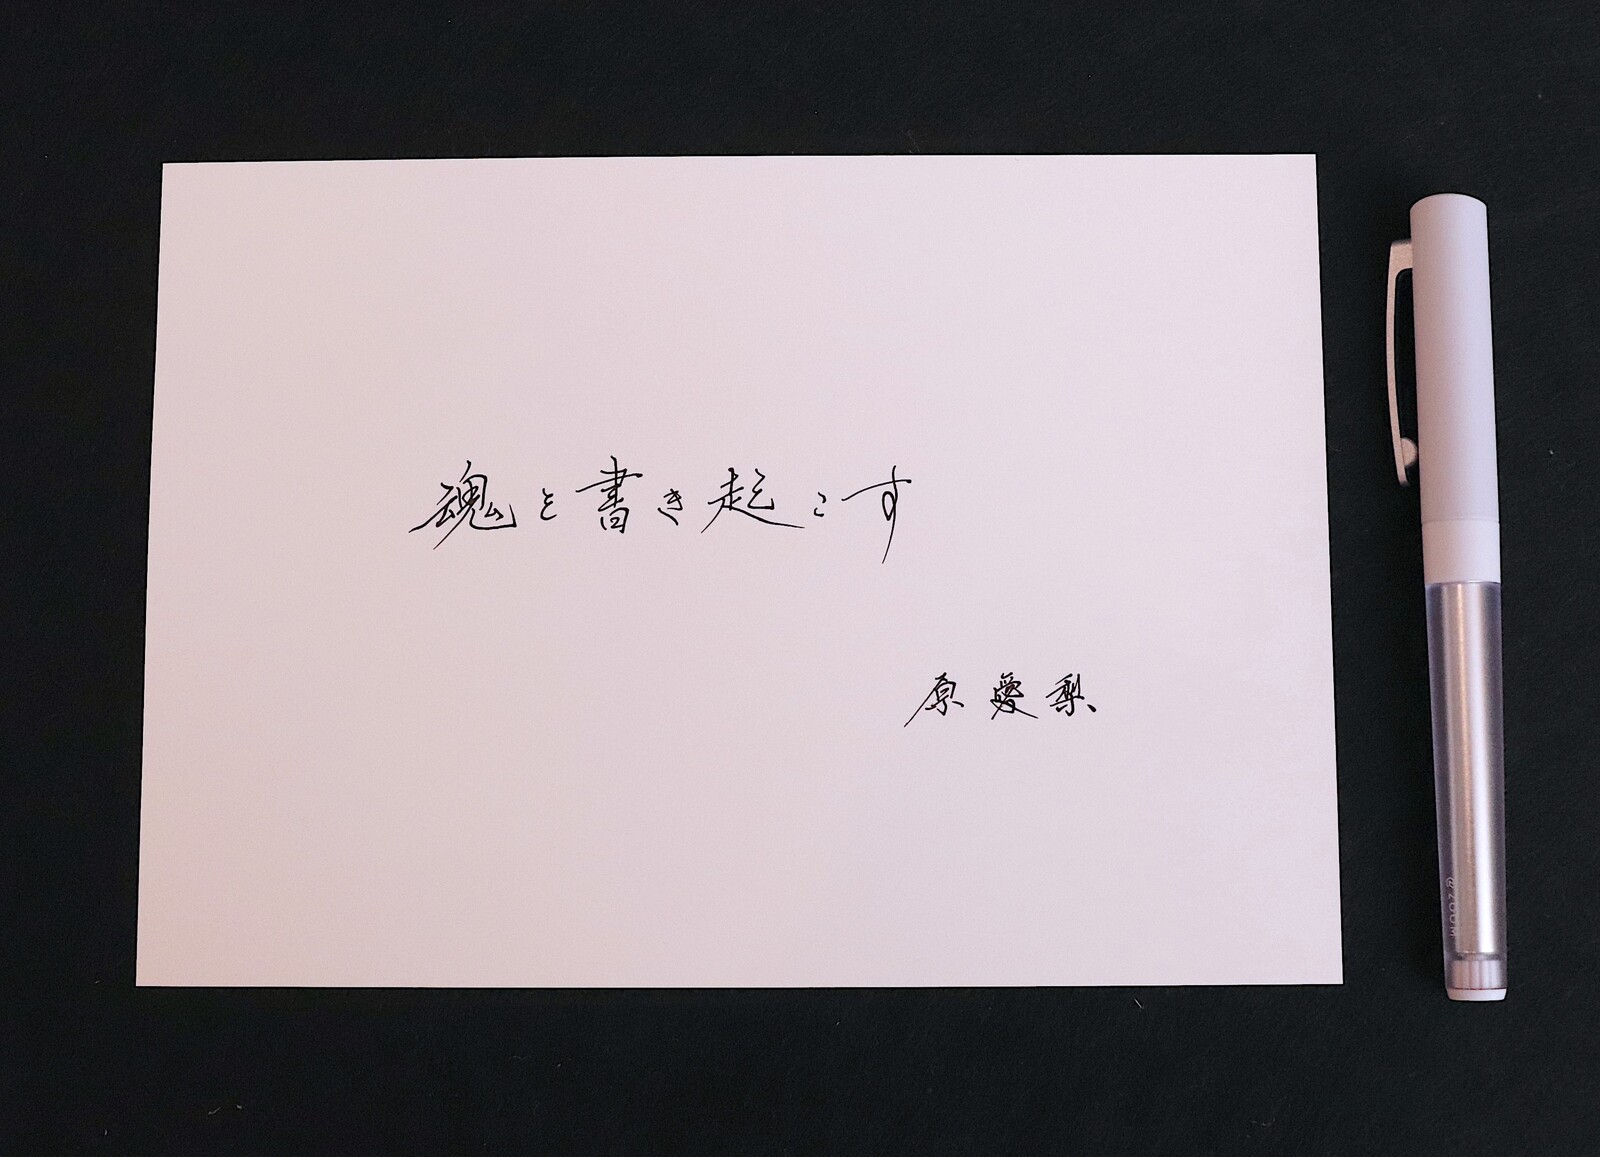 魂を書き起こす
原愛梨
@ZOOM